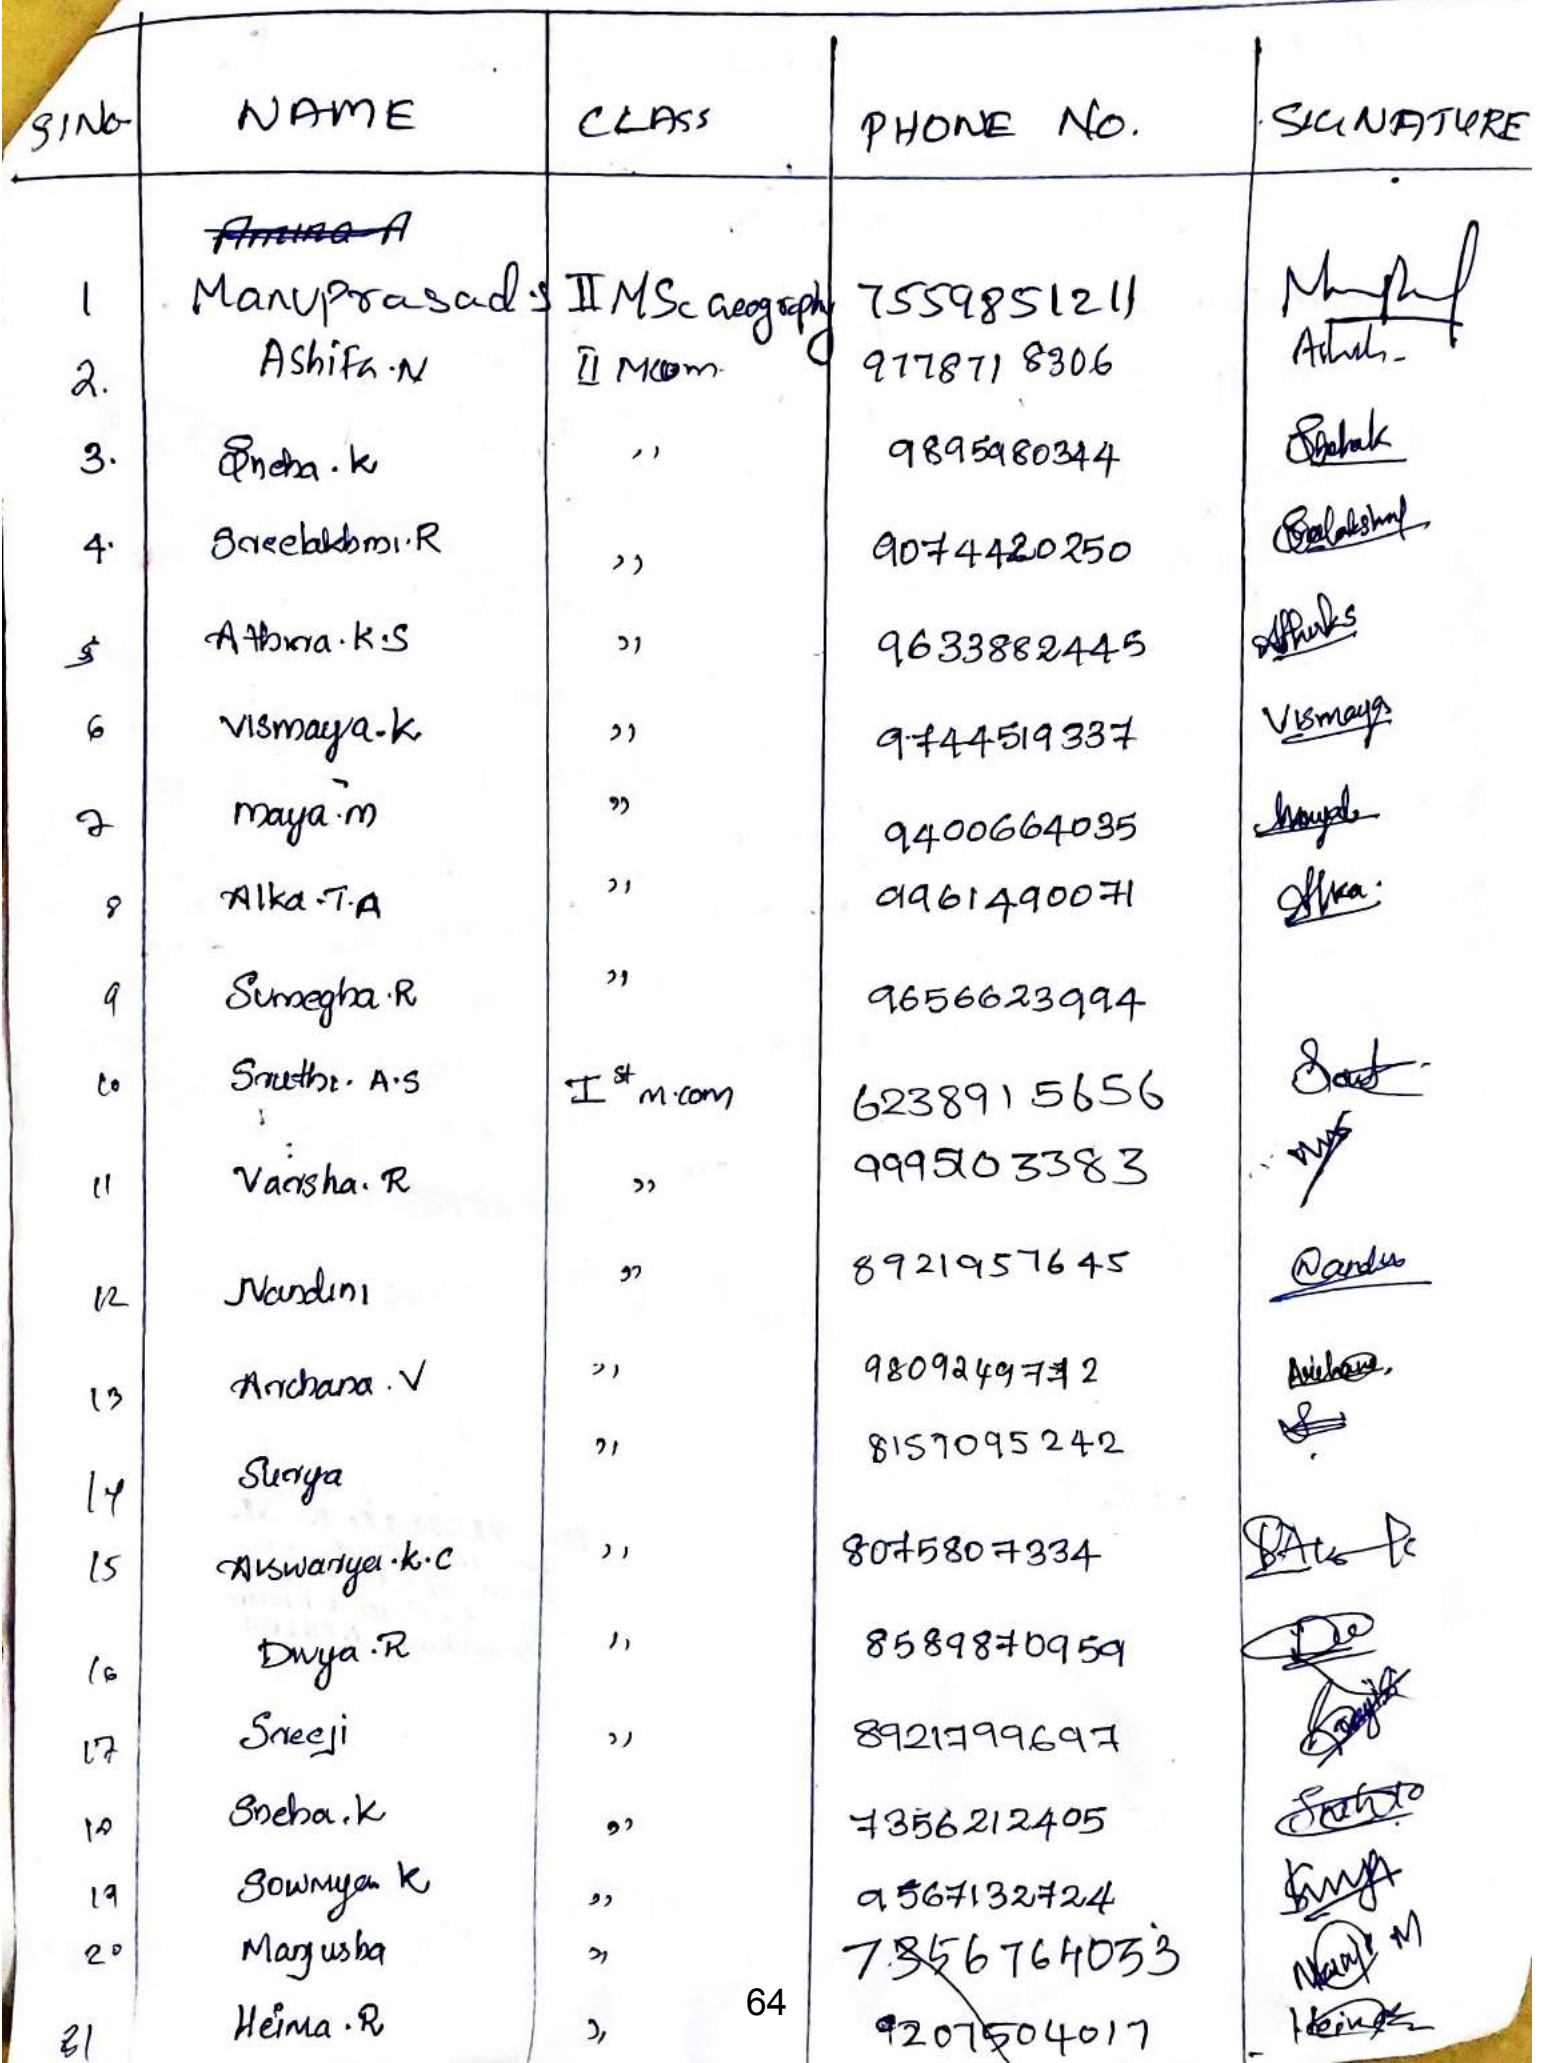 SI No NAME CLASS PHONE No. SIGNATURE
Amina A
1 Manuprasad.s II MSc Geography 7559851211
2. Ashifa.N II Mcom 9778718306
3. Sneha.k ,, 9895980344 Snehak
4. Sreelakhmi.R ,, 9074420250
5 Athira.K.S ,, 9633882445
6 Vismaya.k ,, 9744519337 Vismaya
7 Maya.m ,, 9400664035
8 Alka.T.A ,, 9961490071 Alka.
9 Sumegha.R ,, 9656623994
10 Sruthi. A.S Ist m.com 6238915656
11 Varsha. R ,, 9995103383
12 Nandini ,, 8921957645
13 Archana.V ,, 9809249772
14 Surya ,, 8157095242
15 Aiswarya.k.C ,, 8075807334
16 Divya.R ,, 8589870959
17 Sreeji ,, 8921799697
18 Sneha.k ,, 7356212405
19 Sowmya K ,, 9567132724
20 Manjusha ,, 7356764033
21 Heima.R ,, 9207504017
64